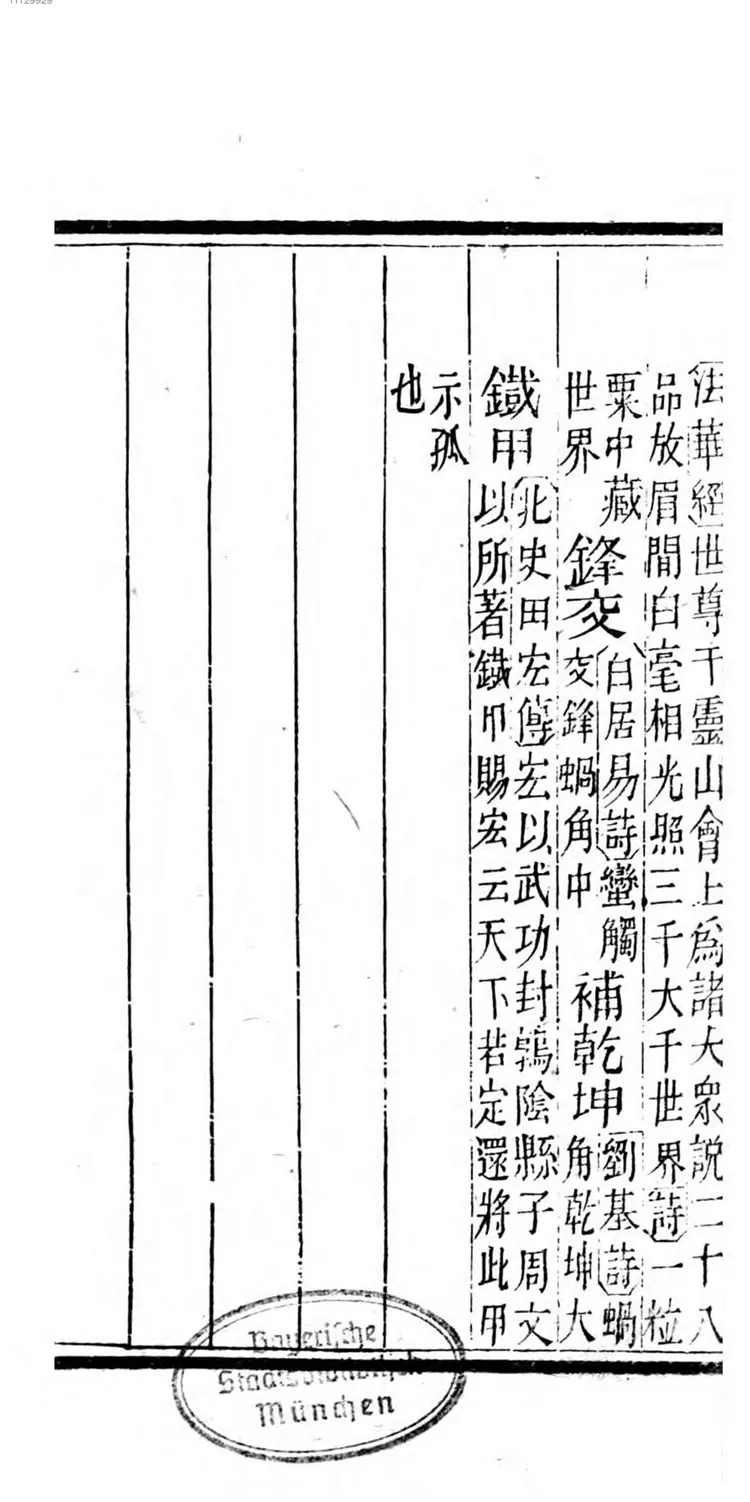 11129929
法華經世尊于靈山會上爲諸大衆説二十八
品放眉間白毫相光照三千大千世界詩一粒
粟中藏
世界
鋒交
白居易詩蠻觸
交鋒蝸角中
補乾坤
劉基詩蝸
角乾坤大
鐵甲
北史田宏傳宏以武功封鶉陰縣子周文
以所著鐵甲賜宏云天下若定還將此甲
示孤
也
Bayerische
Staatsbibliothek
München